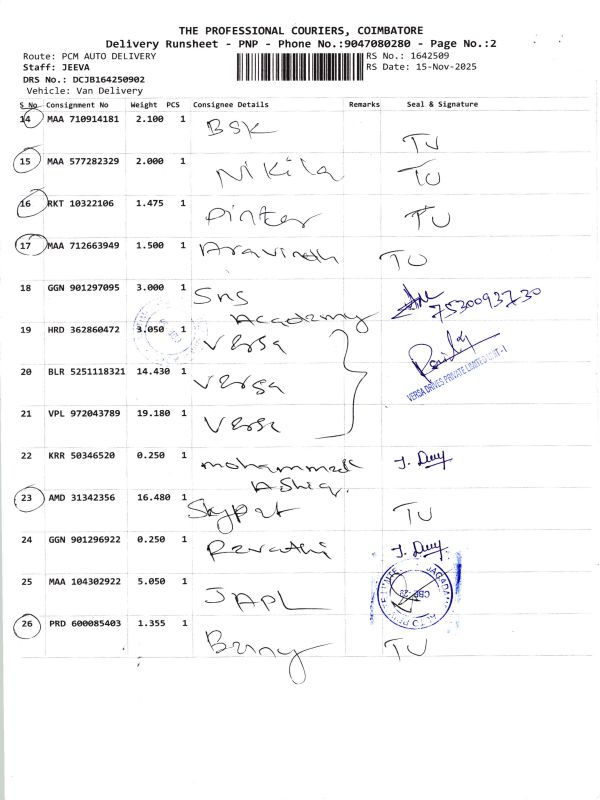 THE PROFESSIONAL COURIERS, COIMBATORE
Delivery Runsheet - PNP - Phone No.:9047080280 - Page No.:2
Route: PCM AUTO DELIVERY RS No.: 1642509
Staff: JEEVA RS Date: 15-Nov-2025
DRS No.: DCJB164250902
Vehicle: Van Delivery
S No Consignment No Weight PCS Consignee Details Remarks Seal & Signature
14 MAA 710914181 2.100 1 BSK TU
15 MAA 577282329 2.000 1 Nikila TU
16 RKT 10322106 1.475 1 Pinter TU
17 MAA 712663949 1.500 1 Aravinth TU
18 GGN 901297095 3.000 1 Sns Academy 7530093730
19 HRD 362860472 3.050 1 Versa
20 BLR 5251118321 14.430 1 Versa
VERSA DRIVES PRIVATE LIMITED UNIT-1
21 VPL 972043789 19.180 1 Versa
22 KRR 50346520 0.250 1 mohammed Ashiq
23 AMD 31342356 16.480 1 TU
24 GGN 901296922 0.250 1 Revathi
25 MAA 104302922 5.050 1 JAPL
26 PRD 600085403 1.355 1 TU